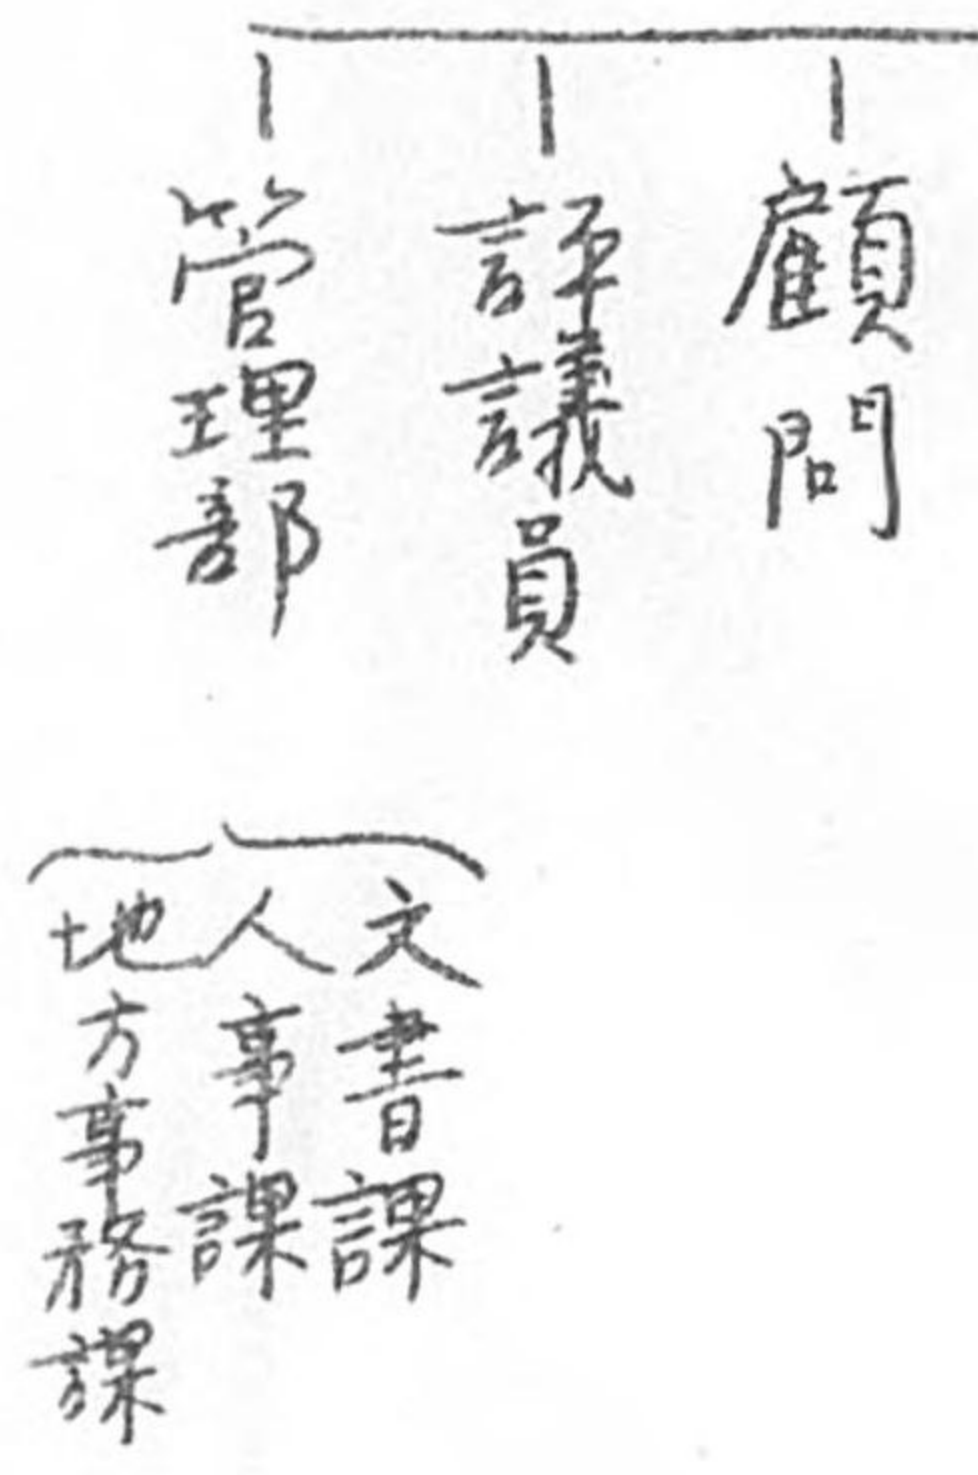 顧問
評議員
管理部
文書課
人事課
地方事務課